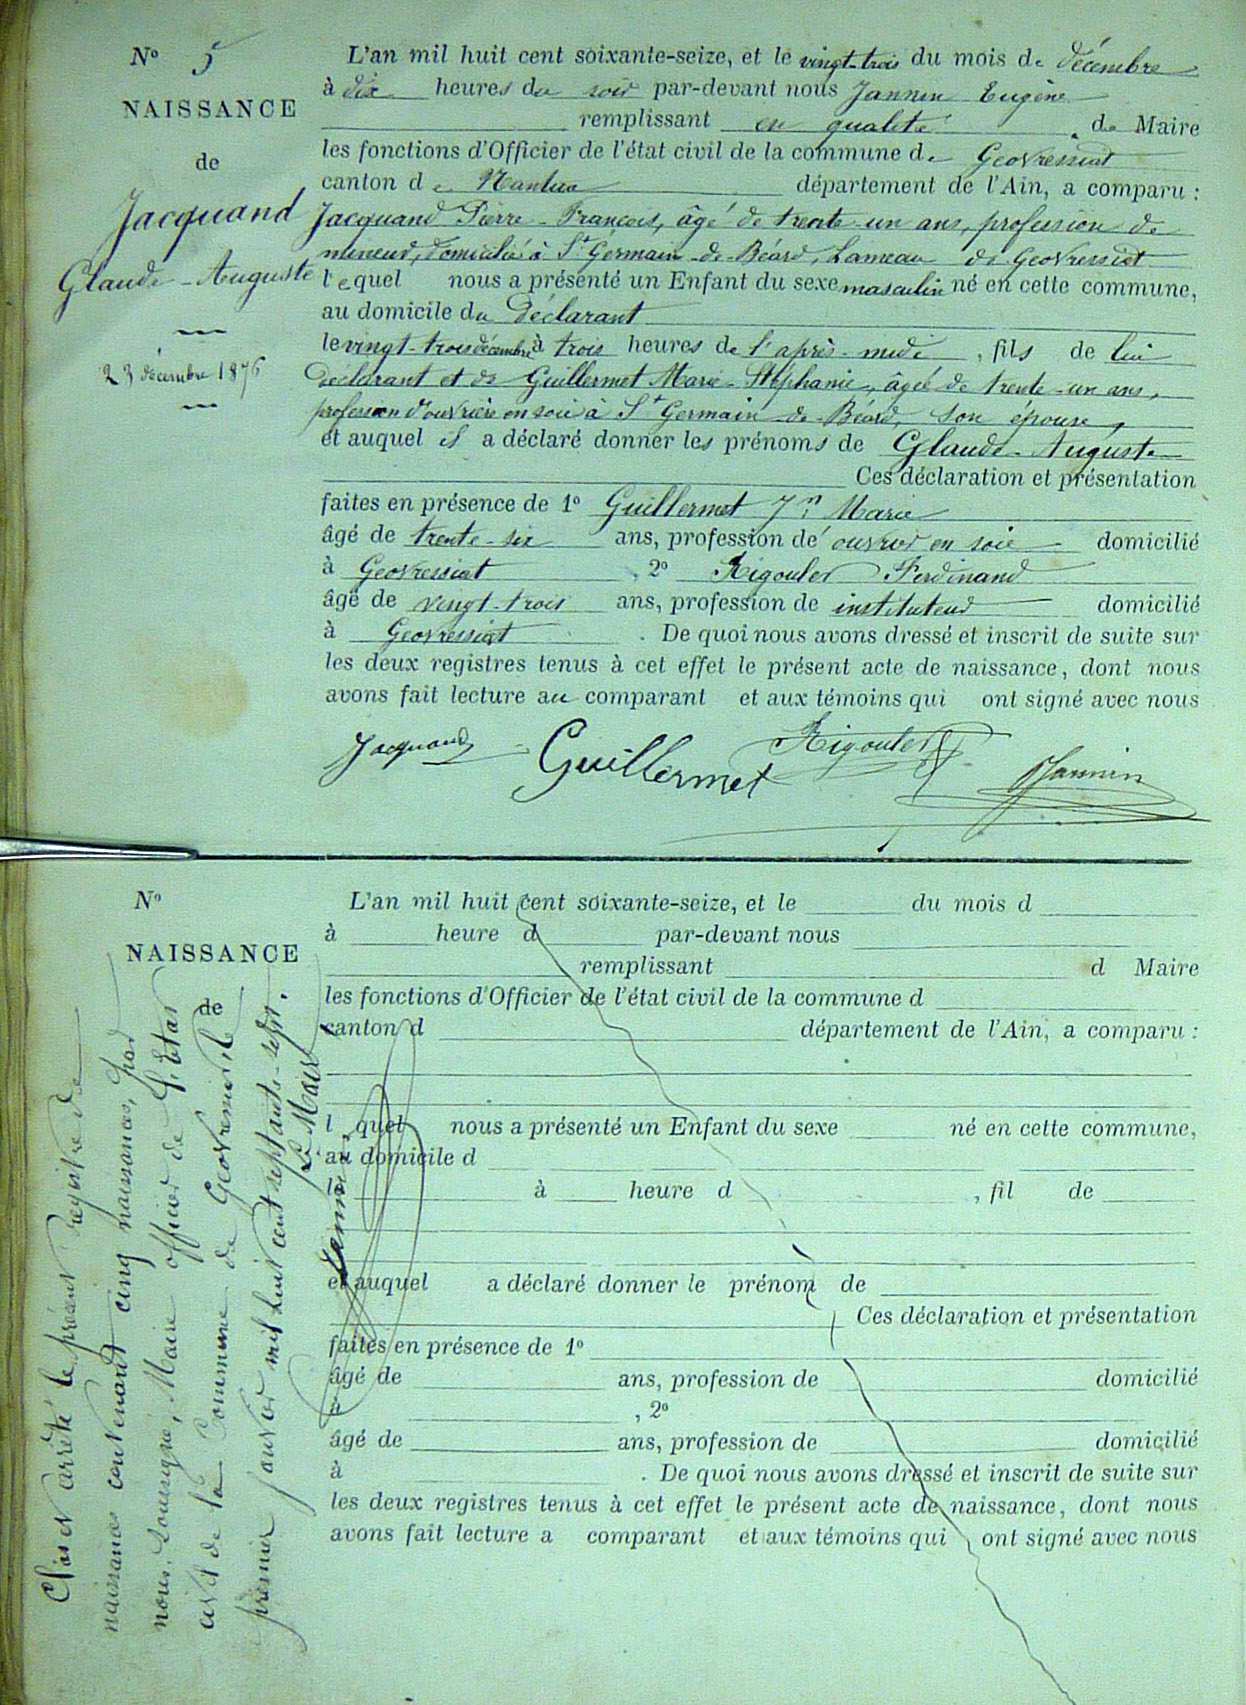 N° 5
NAISSANCE
de
Jacquand
Glaude-Auguste
23 décembre 1876
L'an mil huit cent soixante-seize, et le vingt-trois du mois de décembre
à dix heures du soir par-devant nous Jannin Eugène
remplissant en qualité de Maire
les fonctions d'Officier de l'état civil de la commune de Géovressiat
canton de Nantua département de l'Ain, a comparu :
Jacquand Pierre-François, âgé de trente-un ans, profession de
mineur, domicilié à St Germain-de-Béard, hameau de Géovressiat
lequel nous a présenté un Enfant du sexe masculin né en cette commune,
au domicile du déclarant
le vingt-trois décembre à trois heures de l'après-midi, fils de lui
déclarant et de Guillermet Marie-Stéphanie, âgée de trente-un ans,
profession d'ouvrière en soie à St Germain-de-Béard, son épouse,
et auquel il a déclaré donner les prénoms de Glaude-Auguste
Ces déclaration et présentation
faites en présence de 1° Guillermet Jn Marie
âgé de trente-six ans, profession de ouvrier en soie domicilié
à Géovressiat, 2° Rigoulet Ferdinand
âgé de vingt-trois ans, profession de instituteur domicilié
à Géovressiat. De quoi nous avons dressé et inscrit de suite sur
les deux registres tenus à cet effet le présent acte de naissance, dont nous
avons fait lecture au comparant et aux témoins qui ont signé avec nous
Jacquand Guillermet Rigoulet Jannin
N°
NAISSANCE
de
L'an mil huit cent soixante-seize, et le du mois d
à heure d par-devant nous
remplissant d Maire
les fonctions d'Officier de l'état civil de la commune d
canton d département de l'Ain, a comparu :
l quel nous a présenté un Enfant du sexe né en cette commune,
au domicile d
le à heure d , fil de
et auquel a déclaré donner le prénom de
Ces déclaration et présentation
faites en présence de 1°
âgé de ans, profession de domicilié
à , 2°
âgé de ans, profession de domicilié
à . De quoi nous avons dressé et inscrit de suite sur
les deux registres tenus à cet effet le présent acte de naissance, dont nous
avons fait lecture a comparant et aux témoins qui ont signé avec nous
Clos et arrêté le présent registre de
naissances contenant cinq naissances, par
nous, soussigné, Maire officier de l'état
civil de la Commune de Géovressiat le
premier janvier mil huit cent septante-sept.
Le Maire
Jannin